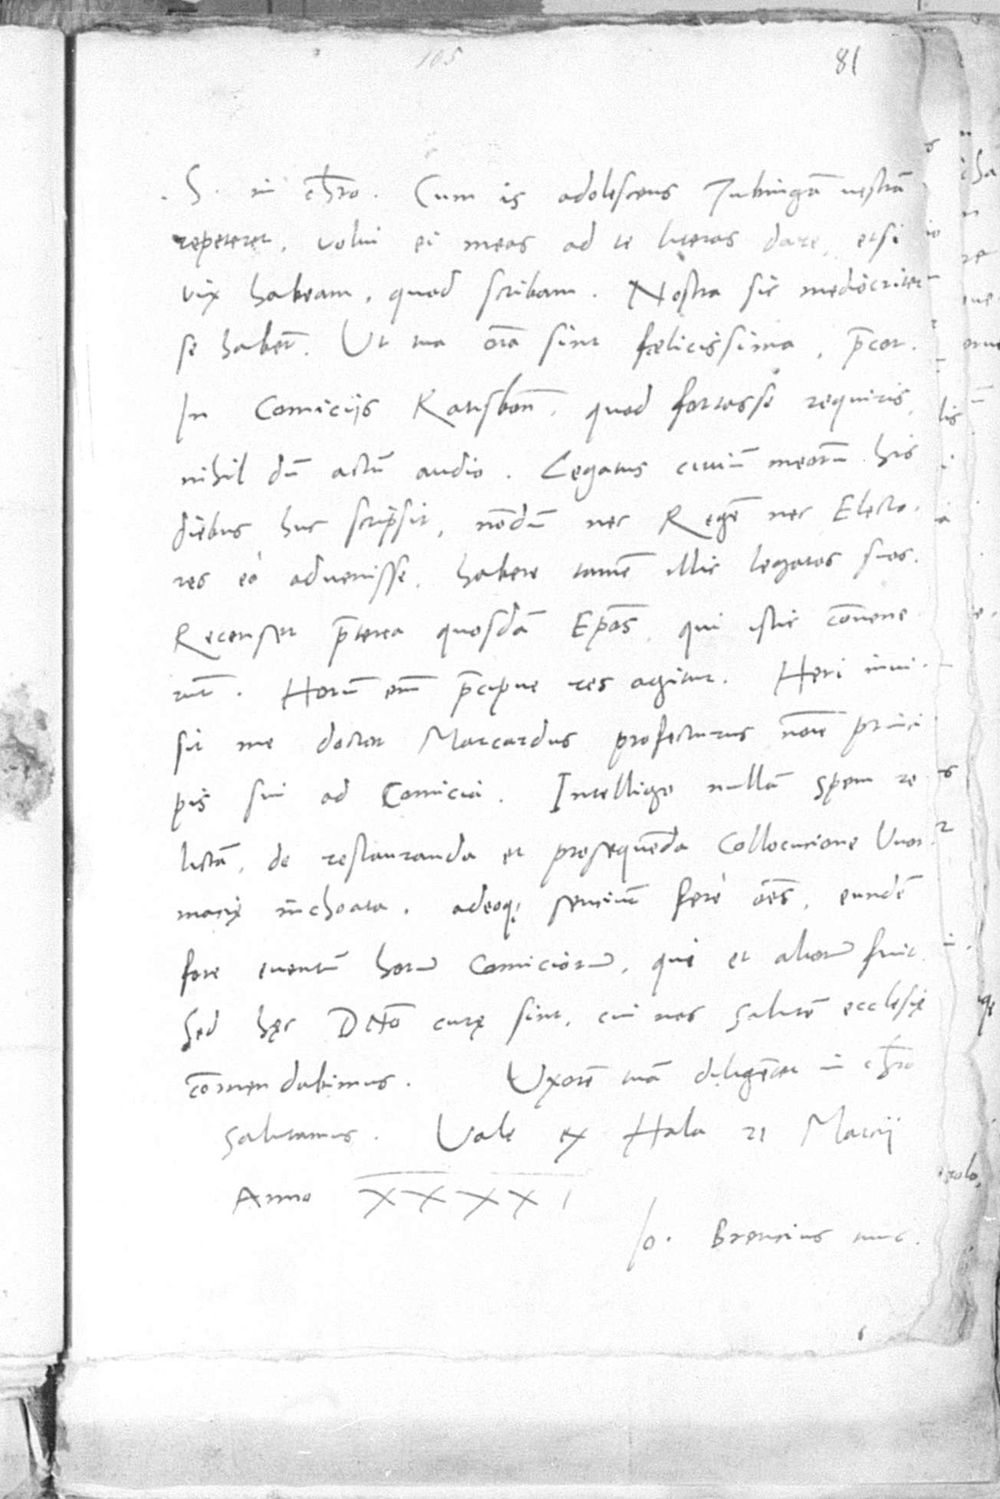 105
81
. S. in chro. Cum is adolescens Tubingā vestrā
repeteret, volui ei meas ad te literas dare, etsi
vix habeam, quod scribam. Nostra sic mediocriter
se habēt. Ut tua oīa sint fœlicissima, p̄cor.
In Comicijs Ratisbon̄. quod fortasse requiris,
nihil dū actū audio. Legatus civiū meorū his
diebus huc scripsit, nōdū nec Regē nec Electo-
res eò advenisse, habere tamē illic legatos suos.
Recenset p̄terea quosdā Epōs, qui istic cōvene-
rūt. Horū em̄ p̄cipue res agitur. Heri invi-
sit me doctor Marcardus profecturus nōie princi
pis sui ad Comicia. Intelligo nullā spem re
lictā, de restauranda et prosequēda Collocucione Vuor-
macię inchoata. adeoq; senciūt ferè oēs, eundē
fore eventū horū Comiciorū, qui et aliorū fuit.
Sed hęc DNō curę sint, cui nos salutē ecclesię
cōmendabimus. Uxorē tuā diligēter in chro
salutamus. Vale ex Hala 21 Marcij
Anno XXXXI
Jo. Brencius